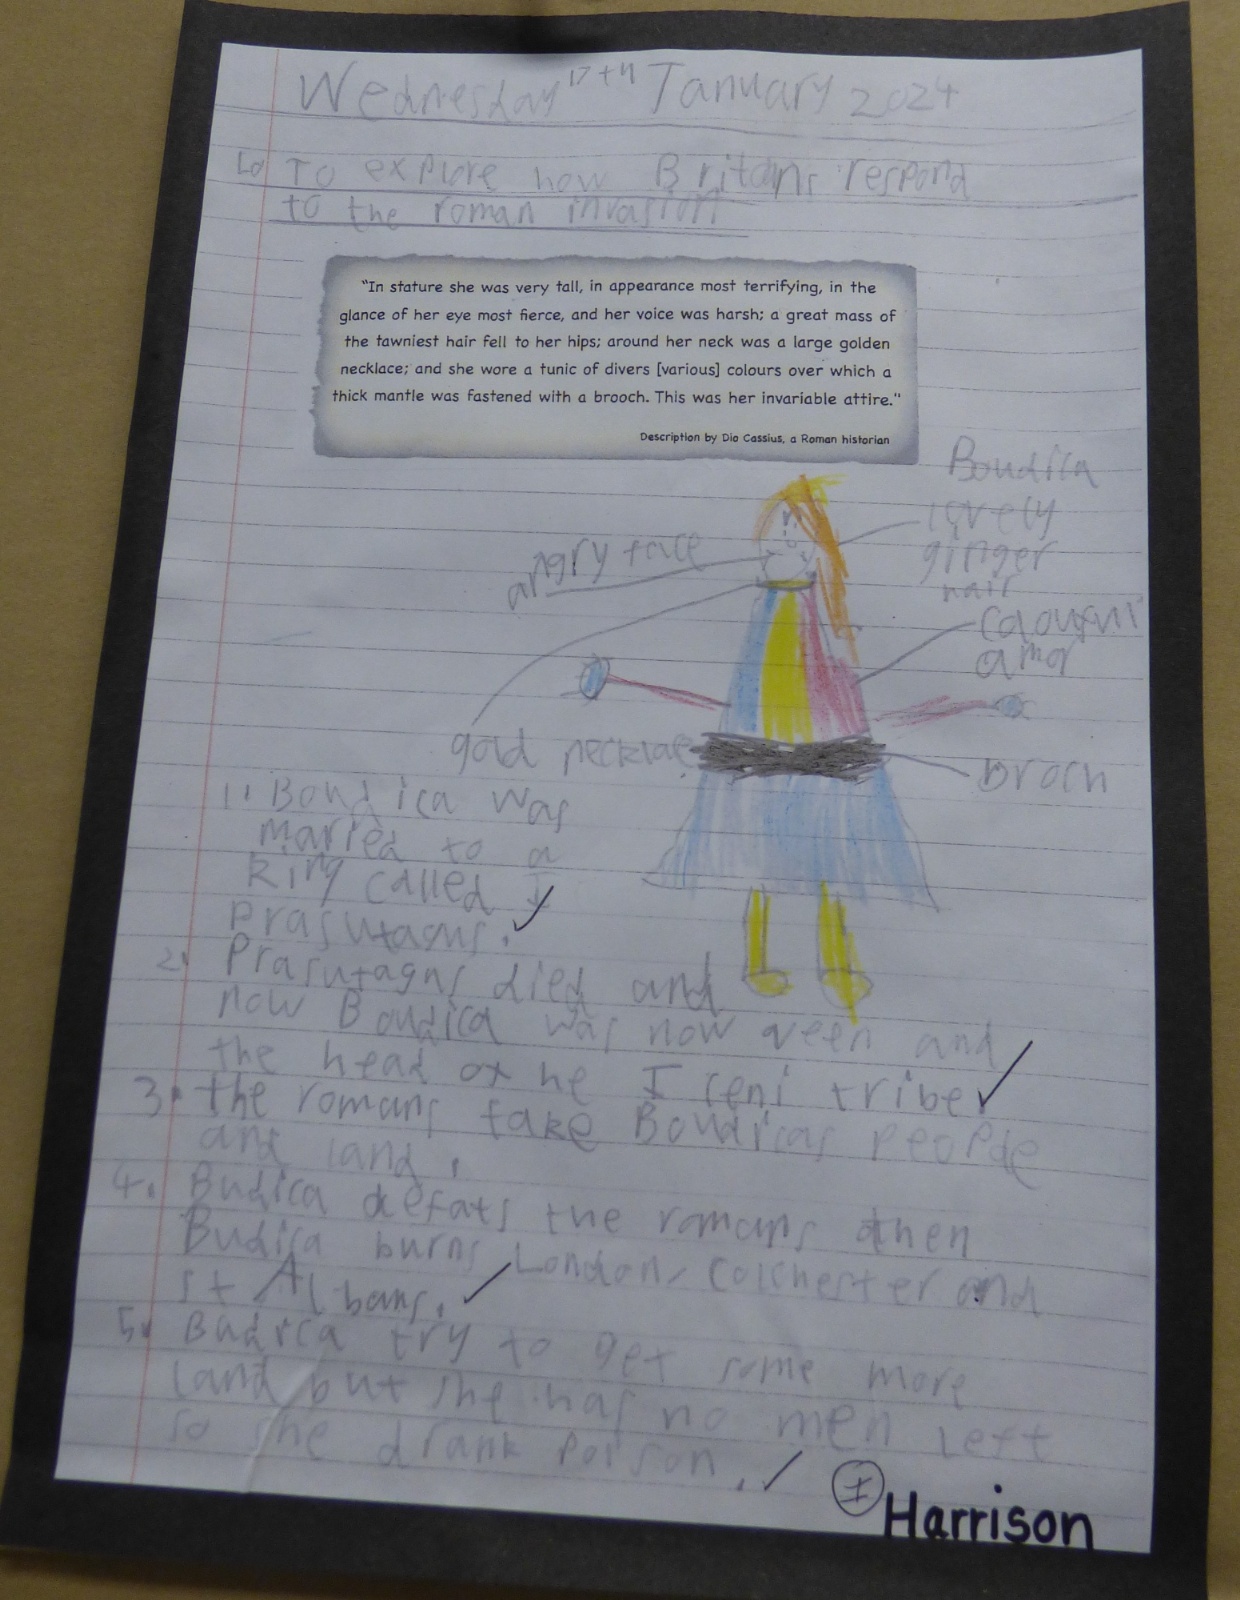 Wednesday 17th January 2024
Lo To explore how Britans respond
to the roman invasion
"In stature she was very tall, in appearance most terrifying, in the
glance of her eye most fierce, and her voice was harsh; a great mass of
the tawniest hair fell to her hips; around her neck was a large golden
necklace; and she wore a tunic of divers [various] colours over which a
thick mantle was fastened with a brooch. This was her invariable attire."
Description by Dio Cassius, a Roman historian
Boudica
lovely
ginger
hair
angry face
amor
gold necklace
broch
1. Boudica was
maried to a
King called
Prasutagus.
2. Prasutagns died and
now Boudica was now qeen and
the head of he Iceni tribe
3. the romans take Boudicas peoplde
and land.
4. Budica defats the romans then
Budica burns London, Colchester and
St Albans.
5. Budica try to get some more
land but she has no men left
so she drank poison.
I
Harrison